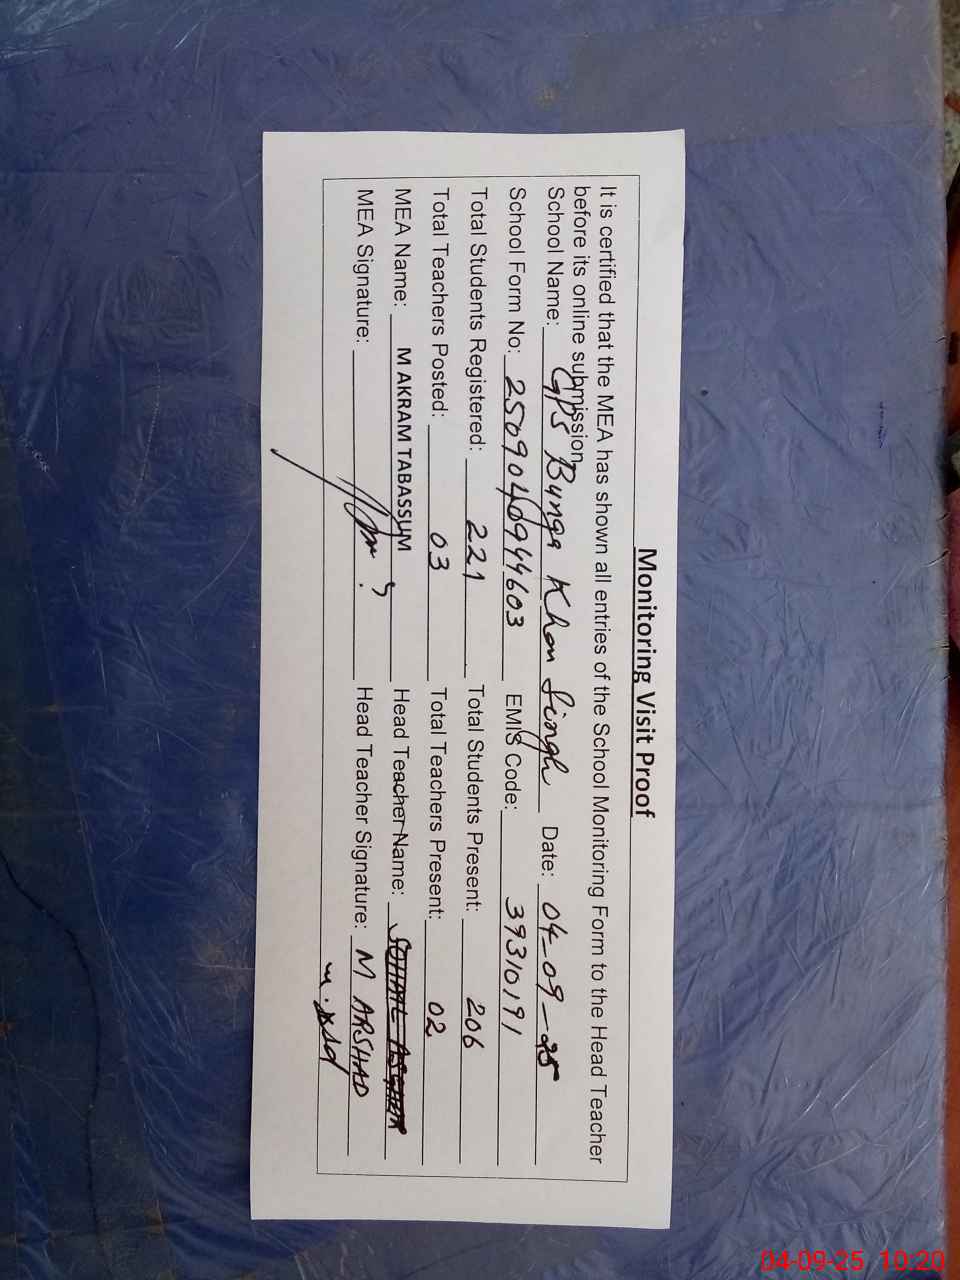 Monitoring Visit Proof
It is certified that the MEA has shown all entries of the School Monitoring Form to the Head Teacher
before its online submission.
School Name: GPS Bunga Khan Singh Date: 04-09-25
School Form No: 2509040944603 EMIS Code: 39310191
Total Students Registered: 221 Total Students Present: 206
Total Teachers Posted: 03 Total Teachers Present: 02
MEA Name: M AKRAM TABASSUM Head Teacher Name:
MEA Signature: Head Teacher Signature: M ARSHAD
04-09-25 10:20